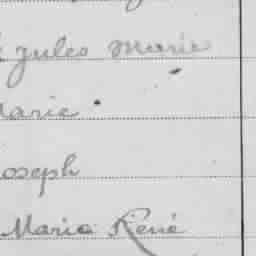 Jules Marie
Marie
Joseph
Maria René